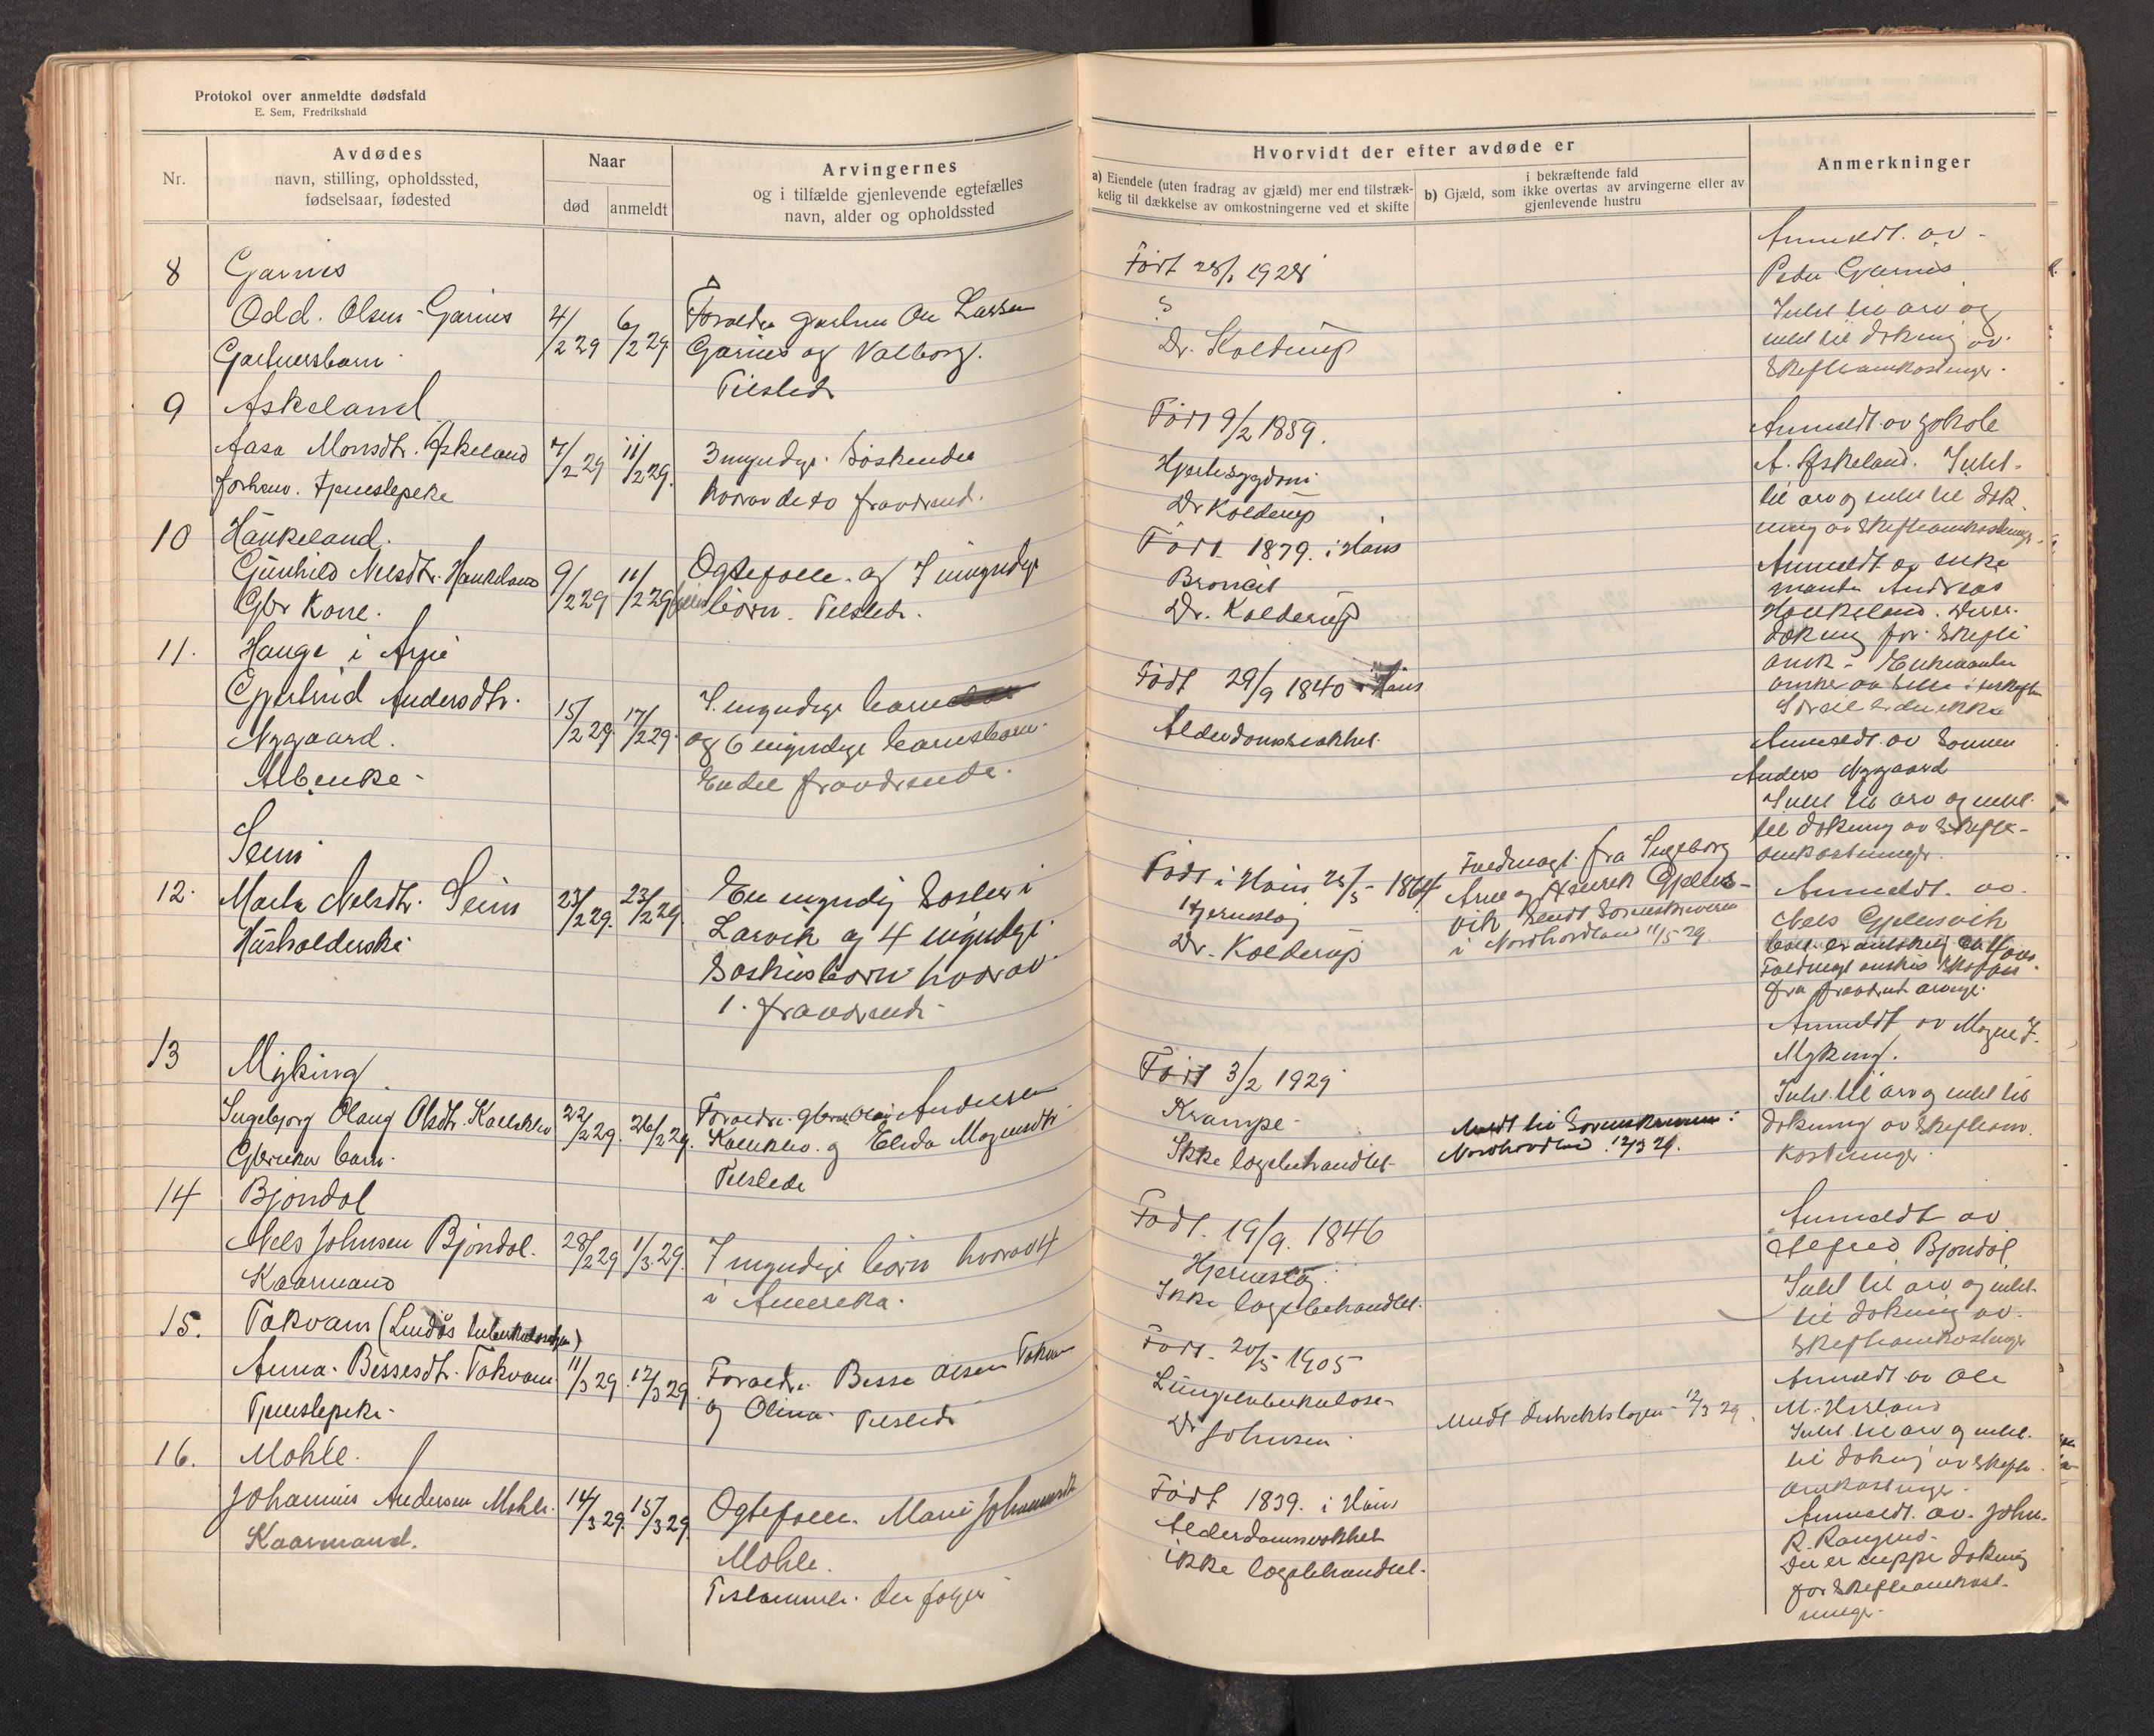 Protokol over anmeldte dødsfald
E. Sem, Fredrikshald
Nr.
Avdødes
navn, stilling, opholdssted,
fødselsaar, fødested
Naar
død
anmeldt
Arvingernes
og i tilfælde gjenlevende egtefælles
navn, alder og opholdssted
Hvorvidt der efter avdøde er
a) Eiendele (uten fradrag av gjæld) mer end tilstræk-
kelig til dækkelse av omkostningerne ved et skifte
i bekræftende fald
b) Gjæld, som ikke overtas av arvingerne eller av
gjenlevende hustru
Anmerkninger
8
Garnes
Odd. Olsen Garnes
Gartnersbarn
4/2 29
6/2 29
Foreldre gartner Ole Larsen
Garnes og Valborg.
Tilstede
Født 28/1 1928
?
Dr. Kolderup
Anmeldt av
Peder Garnes
Intet til arv og
intet til dekning av
Skifteomkostninger.
9
Askeland
Aasa Monsdtr. Askeland
forhenv. Tjenestepike
7/2 29
11/2 29.
3 myndige Søskende
hvorav de to fraværend.
Født 9/2 1859.
Hjertesygdom
Dr Kolderup
Anmeldt av
A. Askeland. Intet
til arv og intet til dek
ning av Skifteomkostninger
10
Haukeland.
Gunhild Nilsdtr. Haukeland
Gbr Kone.
9/2 29
11/2 29
Ogtefelle og 7 umyndige
børn. Tilstede.
Født 1879. i Haus
Dr. Kolderup
Anmeldt av enke
manden Andreas
Haukeland.
dekning for Skifte
omk. Enkemanden
11.
Hauge i Arne
Gjertrud Andersdtr.
Nygaard.
15/2 29
17/2 29.
7 myndige barn
og 6 myndige barnebarn
Endel fraværende.
Født 29/9 1840 i Haus
Alderdomssvakhet
Anmeldt av Sønnen
Anders Nygaard
Intet til arv og intet
til dekning av Skifte-
omkostninger.
12.
Seim
Marta Nilsdtr. Seim
Husholderske
23/2 29.
23/2 29.
En myndig Søster i
Larvik og 4 myndige
Søskenbørn hvorav
1. fraværende
Født i Haus 25/5 1864
Hjerneslag
Dr. Kolderup
Fuldmagt fra Ingeborg
Arne og Henrik Gjelles-
vik Sendt Sorenskriveren
i Nordhordland 11/5 29.
Anmeldt av
Nils Gjellesvik
fra fraværende arvinge.
13
Myking
Ingebjorg Olaug Olsdtr.
Gbruker barn.
22/2 29.
26/2 29.
Foreldre. Gbr Andersen
og Elida Magnesdtr
Tilstede
Født 3/2 1929
Krampe
Ikke lægebehandlet
Meldt til Sorenskriveren i
Nordhordland 12/3 29.
Anmeldt av Magne J.
Myking.
Intet til arv og intet til
dekning av Skifteom
kostninger
14
Bjøndal
Nils Johnsen Bjøndal.
Kaarmand
28/2 29
1/3 29.
7 myndige børn hvorav 4
i Amerika.
Født. 19/9. 1846
Hjerneslag.
Ikke lægebehandlet.
Anmeldt av
Alfred Bjøndal
Intet til arv og intet
til dekning av
Skifteomkostninger
15.
Takvam (Lindås tuberkulosehjem)
Anna Bessesdtr. Takvam
Tjenestepike
11/3 29.
12/3 29
Foreldre Besse Olsen Takvam
og Olina Tilstede
Født. 20/5 1905
Lungetuberkulose
Dr Johnsen
Meldt Distriktslægen 12/3 29.
Anmeldt av Ole
M. Herland
Intet til arv og intet
til dekning av Skifte
omkostninger
16.
Mohle.
Johannes Andersen Mohle.
Kaarmand.
14/3 29.
15/3 29
Ogtefelle. Marie Johannesdtr
Mohle.
Født 1839. i Haus
Alderdomssvakhet
ikke lægebehandlet.
Anmeldt. av. John.
Der er neppe dekning
for Skifteomkost-
ninger.